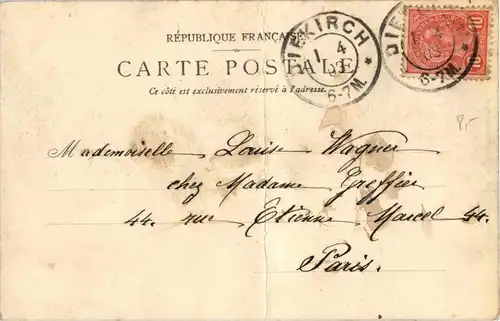 RÉPUBLIQUE FRANÇAISE
CARTE POSTALE
Ce côté est exclusivement réservé à l'adresse.
DIEKIRCH
1 4
03
6-7M.
DIE
10
10
1 4
03
6-7M.
P.-
Mademoiselle Louise Wagner
chez Madame Greffier
44. rue Etienne Marcel 44.
Paris.